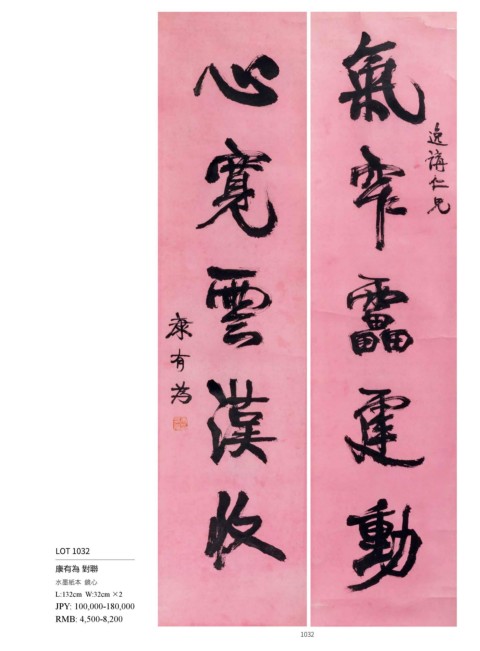 逸仁兄
氣窄靁霆動
心寬雲漢收
康有為
LOT 1032
康有為 對聯
水墨紙本 鏡心
L:132cm W:32cm ×2
JPY: 100,000-180,000
RMB: 4,500-8,200
1032